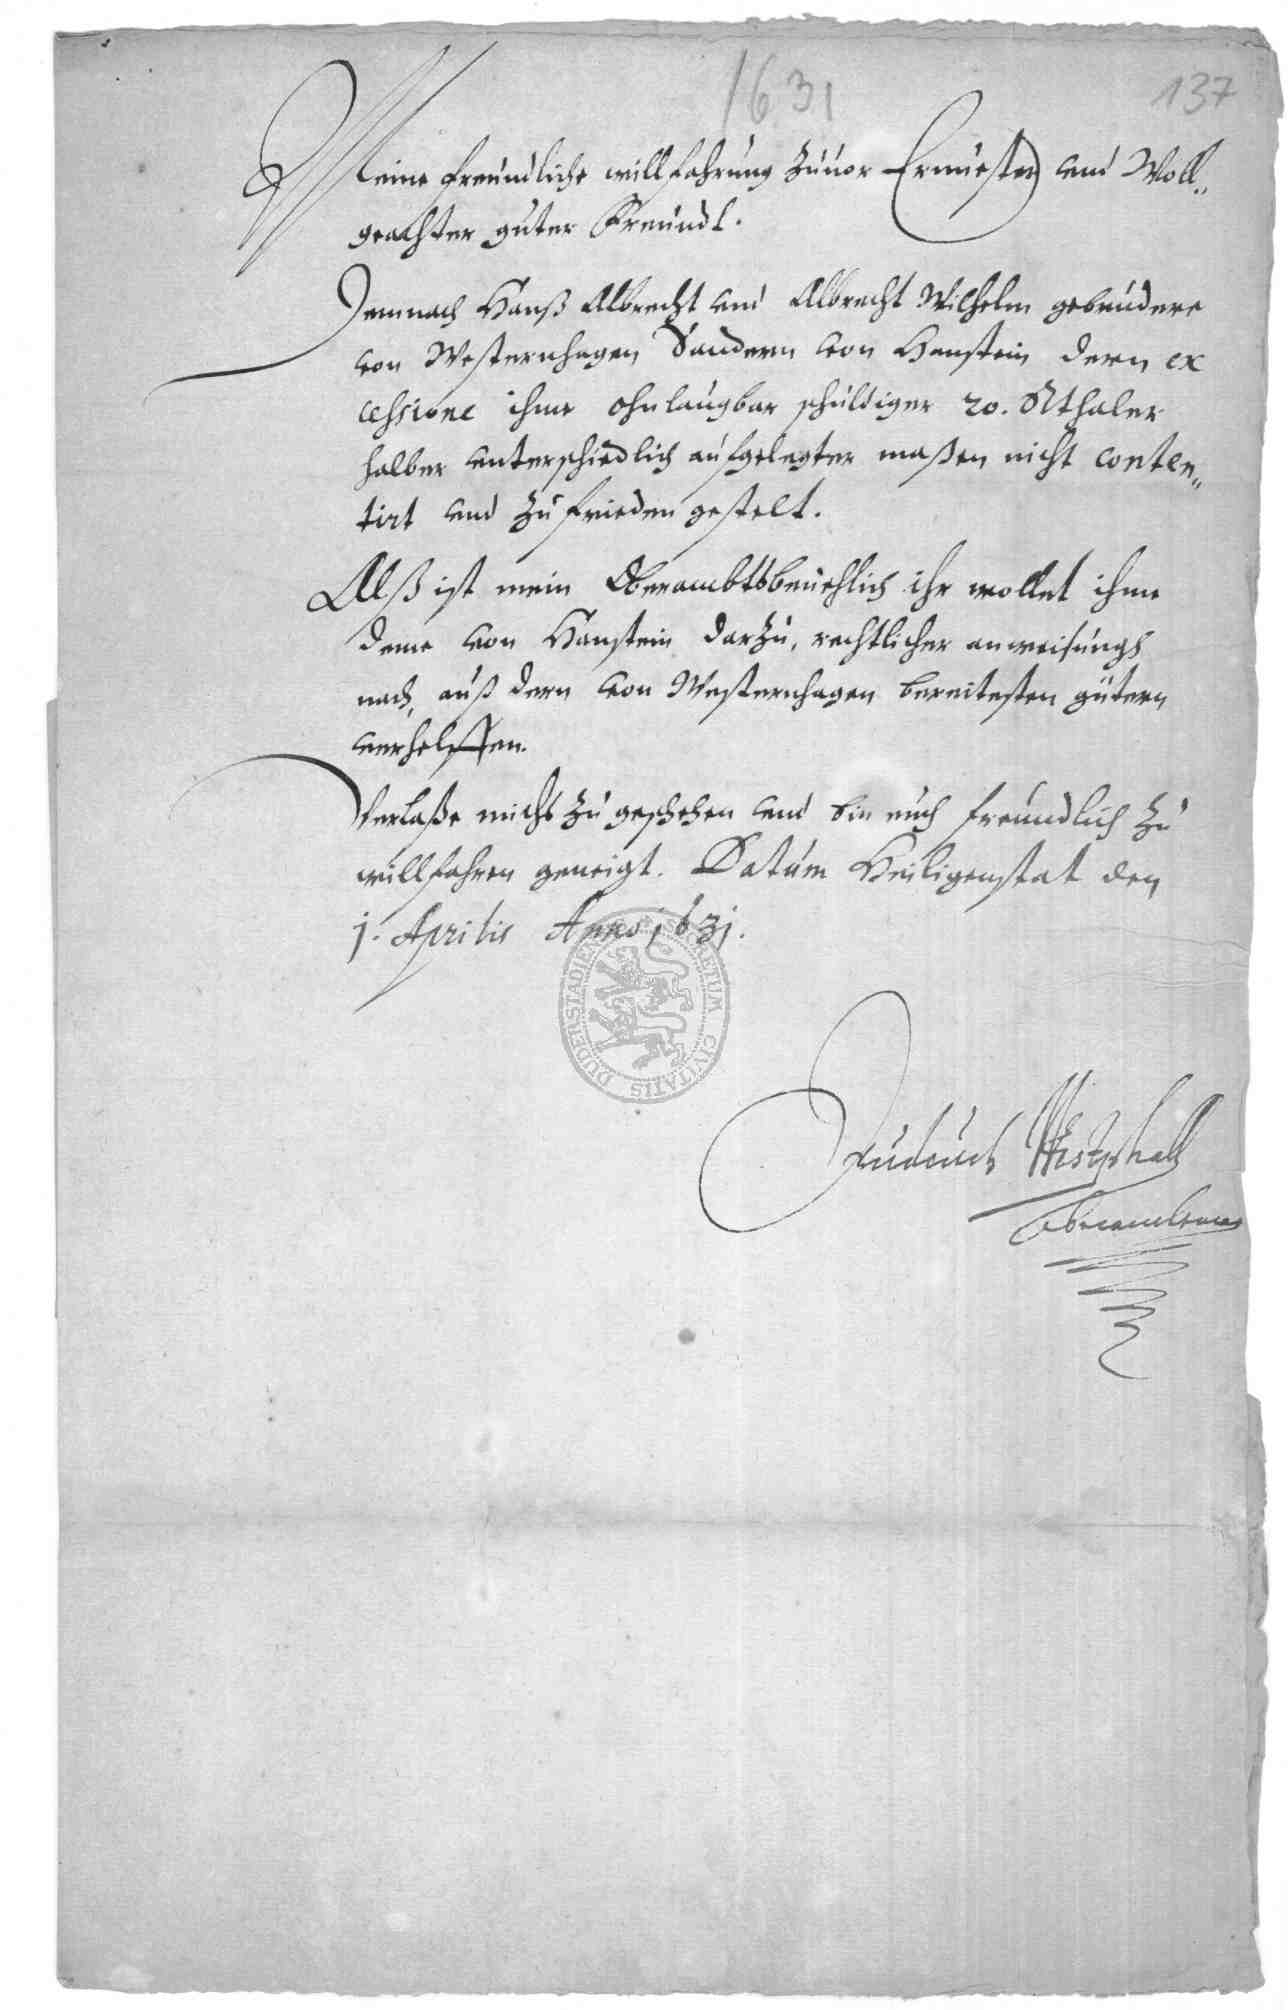 1631
137
Meine freundliche willfahrung zuuor Ernuester vnd Woll-
geachter guter Freundt.
Demnach Hanß Albrecht vnd Albrecht Wilhelm gebruedere
von Westernhagen Sandern von Hanstein dern ex
cessione ihme ohnlaugbar schuldiger 20. Rthaler
halber vnterschiedlich aufgelegter maßen nicht conten-
tirt vnd zu frieden gestelt.
Alß ist mein Oberambtsbeuehlich ihr wollet ihme
deme von Hanstein darzu, rechtlicher anweisungh
nach, auß dern von Westernhagen bereitesten gütern
verhelffen.
Verlaße michs zu geschehen vnd bin euch freundlich zu
willfahren geneigt. Datum Heiligenstat den
j. Aprilis Anno j63j.
SECRETUM CIVITATIS DUDERSTADIENSIS
Westphall